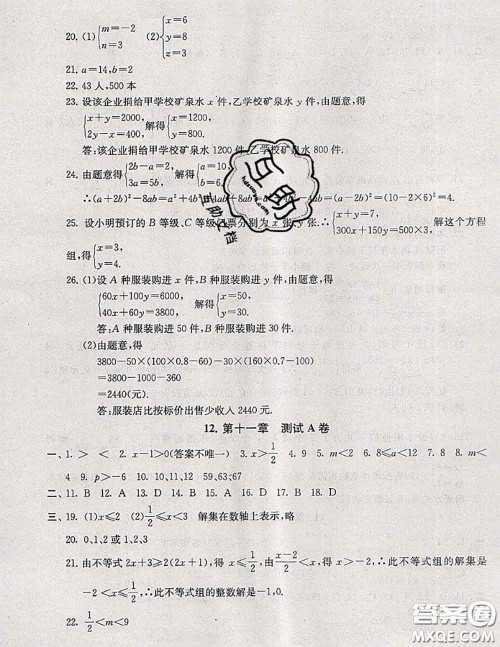 20. (1){m=-2
n=3 (2){x=6
y=8
z=3
21. a=14,b=2
22. 43人,500本
23. 设该企业捐给甲学校矿泉水x件,乙学校矿泉水y件,由题意,得
{x+y=2000,
2y-x=400, 解得{x=1200,
y=800.
答:该企业捐给甲学校矿泉水1200件,乙学校矿泉水800件.
24. 由题意得{2b-a=2,
3a=5b, 解得{a=10,
b=6.
∴(a+2b)²-8ab=a²+4b²
=(a-2b)²=(10-2×6)²=4.
25. 设小明预订的B等级、C等级门票分别为x张,y张.∴{x+y=7,
300x+150y=500×3. 解这个方程
组,得{x=3,
y=4.
26. (1)设A种服装购进x件,B种服装购进y件,由题意,得
{60x+100y=6000,
40x+60y=3800. 解得{x=50,
y=30.
答:A种服装购进50件,B种服装购进30件.
(2)由题意,得
3800-50×(100×0.8-60)-30×(160×0.7-100)
=3800-1000-360
=2440(元).
答:服装店比按标价出售少收入2440元.
12. 第十一章 测试A卷
一、1. > < 2. x-1>0(答案不唯一) 3. x>1/2 4. 9 5. m<2 6. 8≤a<12 7. 5 8. m<
4 9. p>-6 10. 10、11、12 59、63;67
二、11. B 12. A 13. D 14. C 15. D 16. D 17. B 18. D
三、19. (1)x≤2 (2)1/2≤x<3 解集在数轴上表示,略
20. 0、1、2或1、2、3
21. 由不等式2x+3≥2(2x+1),得x≤1/2,由(x-2)/2<x,得x>-2,∴此不等式组的解集是
-2<x≤1/2,∴此不等式组的整数解是-1,0.
22. 1/2<m<9
互助
互助文档
答案圈
MXQE.COM